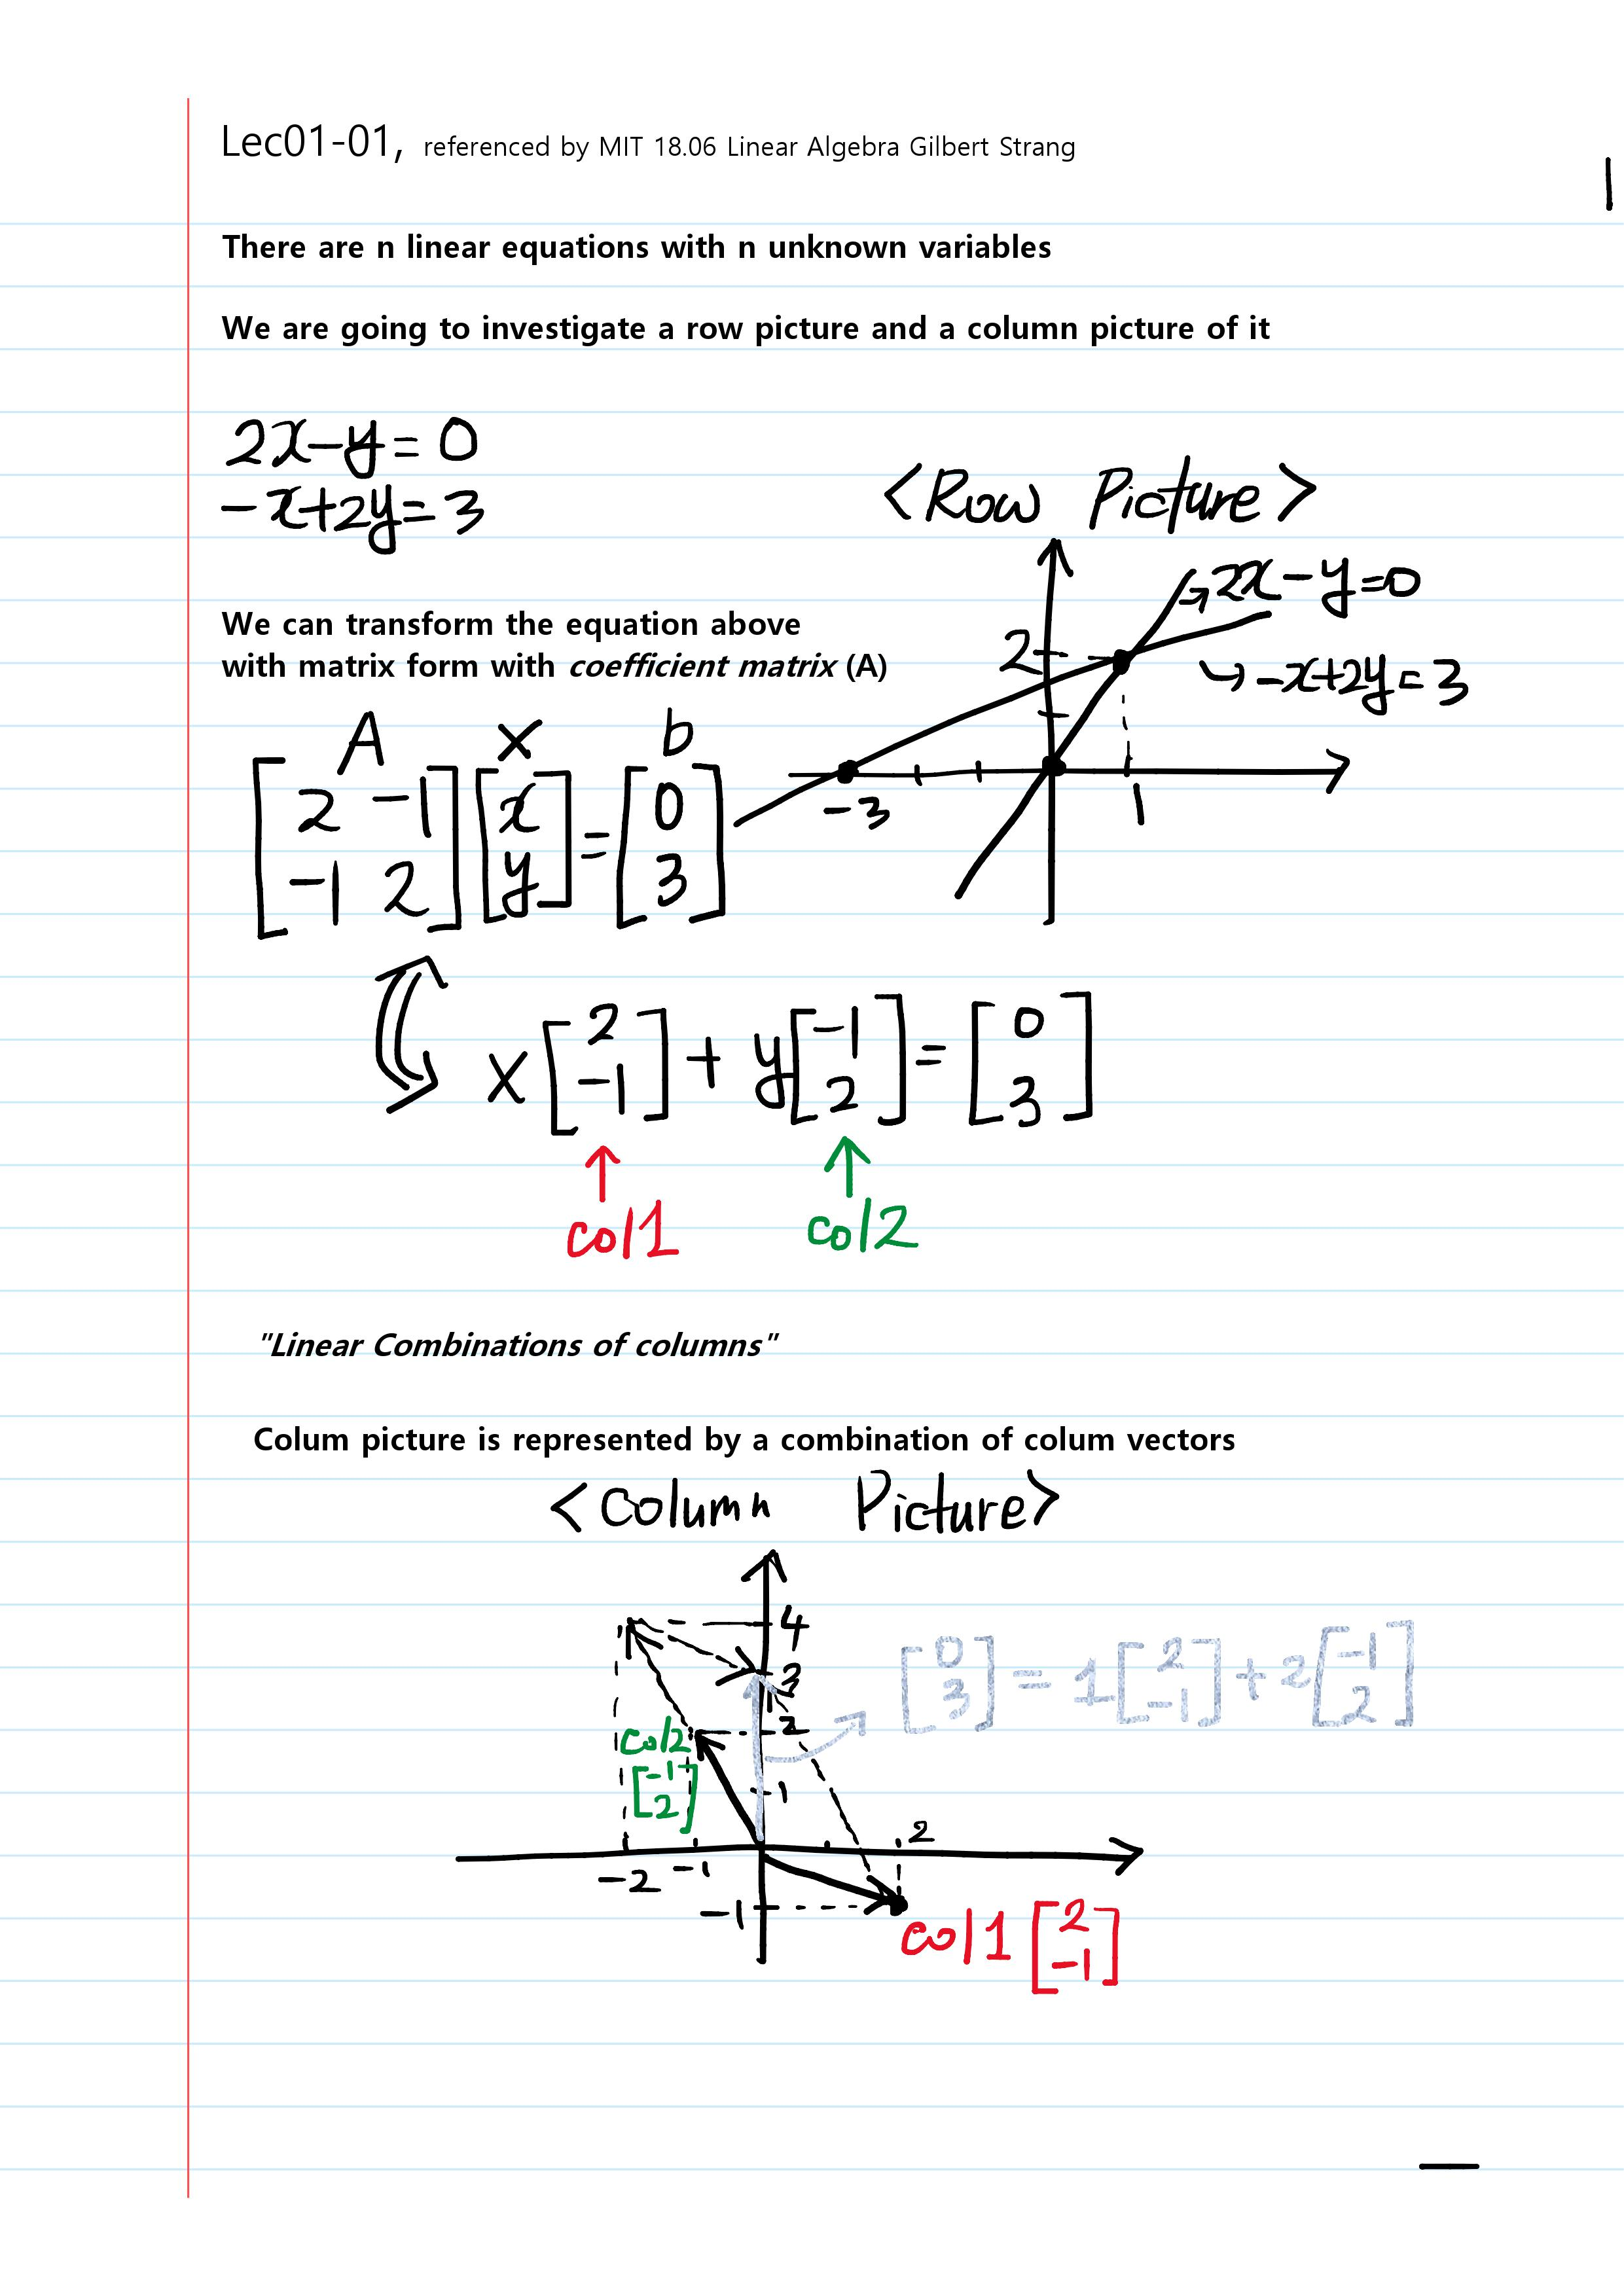 Lec01-01, referenced by MIT 18.06 Linear Algebra Gilbert Strang
There are n linear equations with n unknown variables
We are going to investigate a row picture and a column picture of it
2x-y=0
-x+2y=3
<Row Picture>
2x-y=0
-x+2y=3
2
-3
1
We can transform the equation above
with matrix form with coefficient matrix (A)
A x b
[2 -1] [x] = [0]
[-1 2] [y] [3]
x[2] + y[-1] = [0]
[-1] [2] [3]
col1 col2
"Linear Combinations of columns"
Colum picture is represented by a combination of colum vectors
<Column Picture>
4
3
[0] = 1[2] + 2[-1]
[3] [-1] [2]
2
col2
[-1]
[2]
1
2
-2 -1
-1
col1 [2]
[-1]